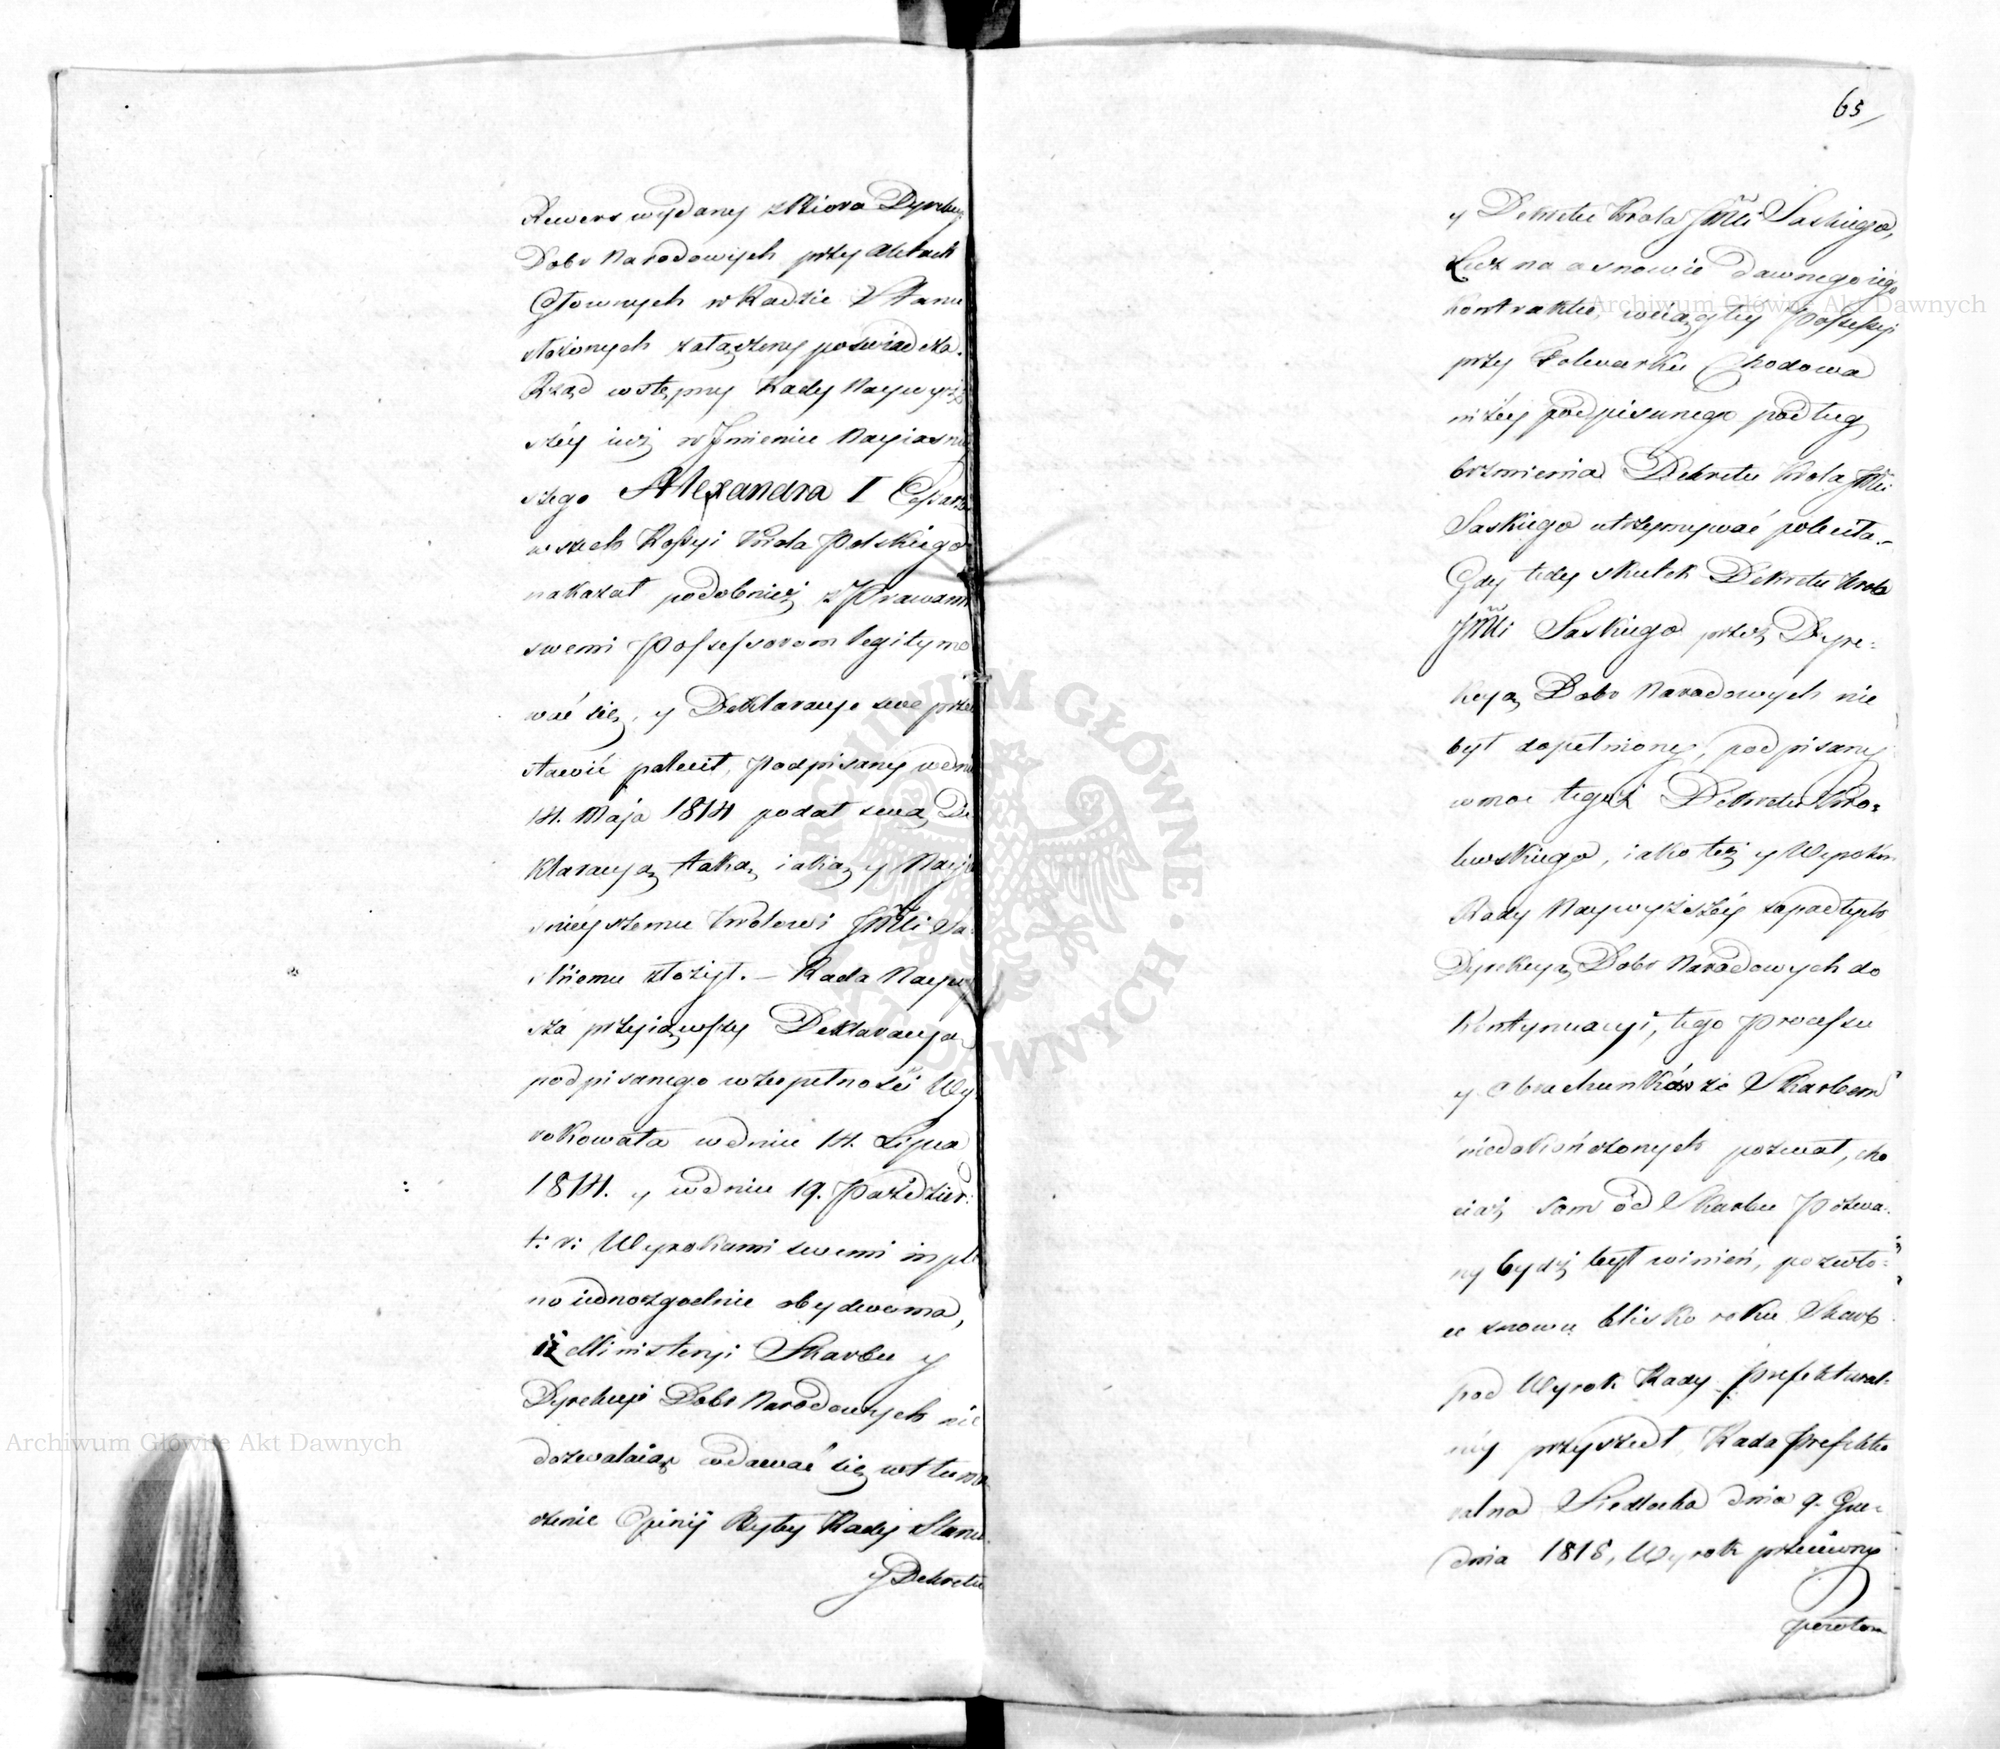 Rewers wydany z Biora Dyrekcyi
Dobr Narodowych przy Aktach
Głownych w Radzie Stanu
złożonych załączony poswiadcza.
Rząd wstępny Rady Naywyż
széy iuż w Jmieniu Nayiasniey
szego Alexandra I Cesarza
wszech Rossyi Krola Polskiego
nakazał podobnież z Prawami
swemi Possessorom legitymo
wać się, y Deklaracye swe przed
stawić polecił, Podpisany w dniu
14. Maja 1814 podał swą De
klaracyą taką iaką y Nayja
snieyszemu Krolowi JMCi Sa
skiemu złożył. – Rada Naywyż
sza przyiąwszy Deklaracyą
podpisanego w zupełności Wy
rokowała w dniu 14. Lipca
1814. y w dniu 19. Paździer:
t: r: Wyrokami swemi in ple
no iednozgodnie obydwoma,
iż Ministeryi Skarbu y
Dyrekcyi Dobr Narodowych nie
dozwalaiąc wdawać się w tłuma
czenie Opinij Byłey Rady Stanu
y Dekretu
65
y Dekretu Krola JMCi Saskiego,
Lecz na osnowie dawnego iego
Kontraktu, w ciągłey Possessyi
przy Folwarku Chodowa
niżey podpisanego podług
brzmienia Dekretu Krola JMCi
Saskiego utrzymywać poleciła.–
Gdy tedy skutek Dekretu Krola
JMCi Saskiego przez Dyre:
kcyą Dobr Narodowych nie
był dopełniony, podpisany
w moc tegoż Dekretu Kro:
lewskiego, iako też y Wyroków
Rady Naywyższéy zapadłych
Dyrekcyą Dobr Narodowych do
Kontynuacyi, tego Processu
y Obrachunków ze Skarbem
niedokończonych pozwał, cho
ciaż sam od Skarbu Pozwa:
ny bydź był winień, pozwło:
ce znowu blisko roku Skarb
pod Wyrok Rady Prefektural:
néy przyszedł Rada Prefektu
ralna Siedlecka dnia 9. Gru:
dnia 1815, Wyrok przeciwny
Archiwum Główne Akt Dawnych
Archiwum Główne Akt Dawnych
ARCHIWUM GŁÓWNE AKT DAWNYCH